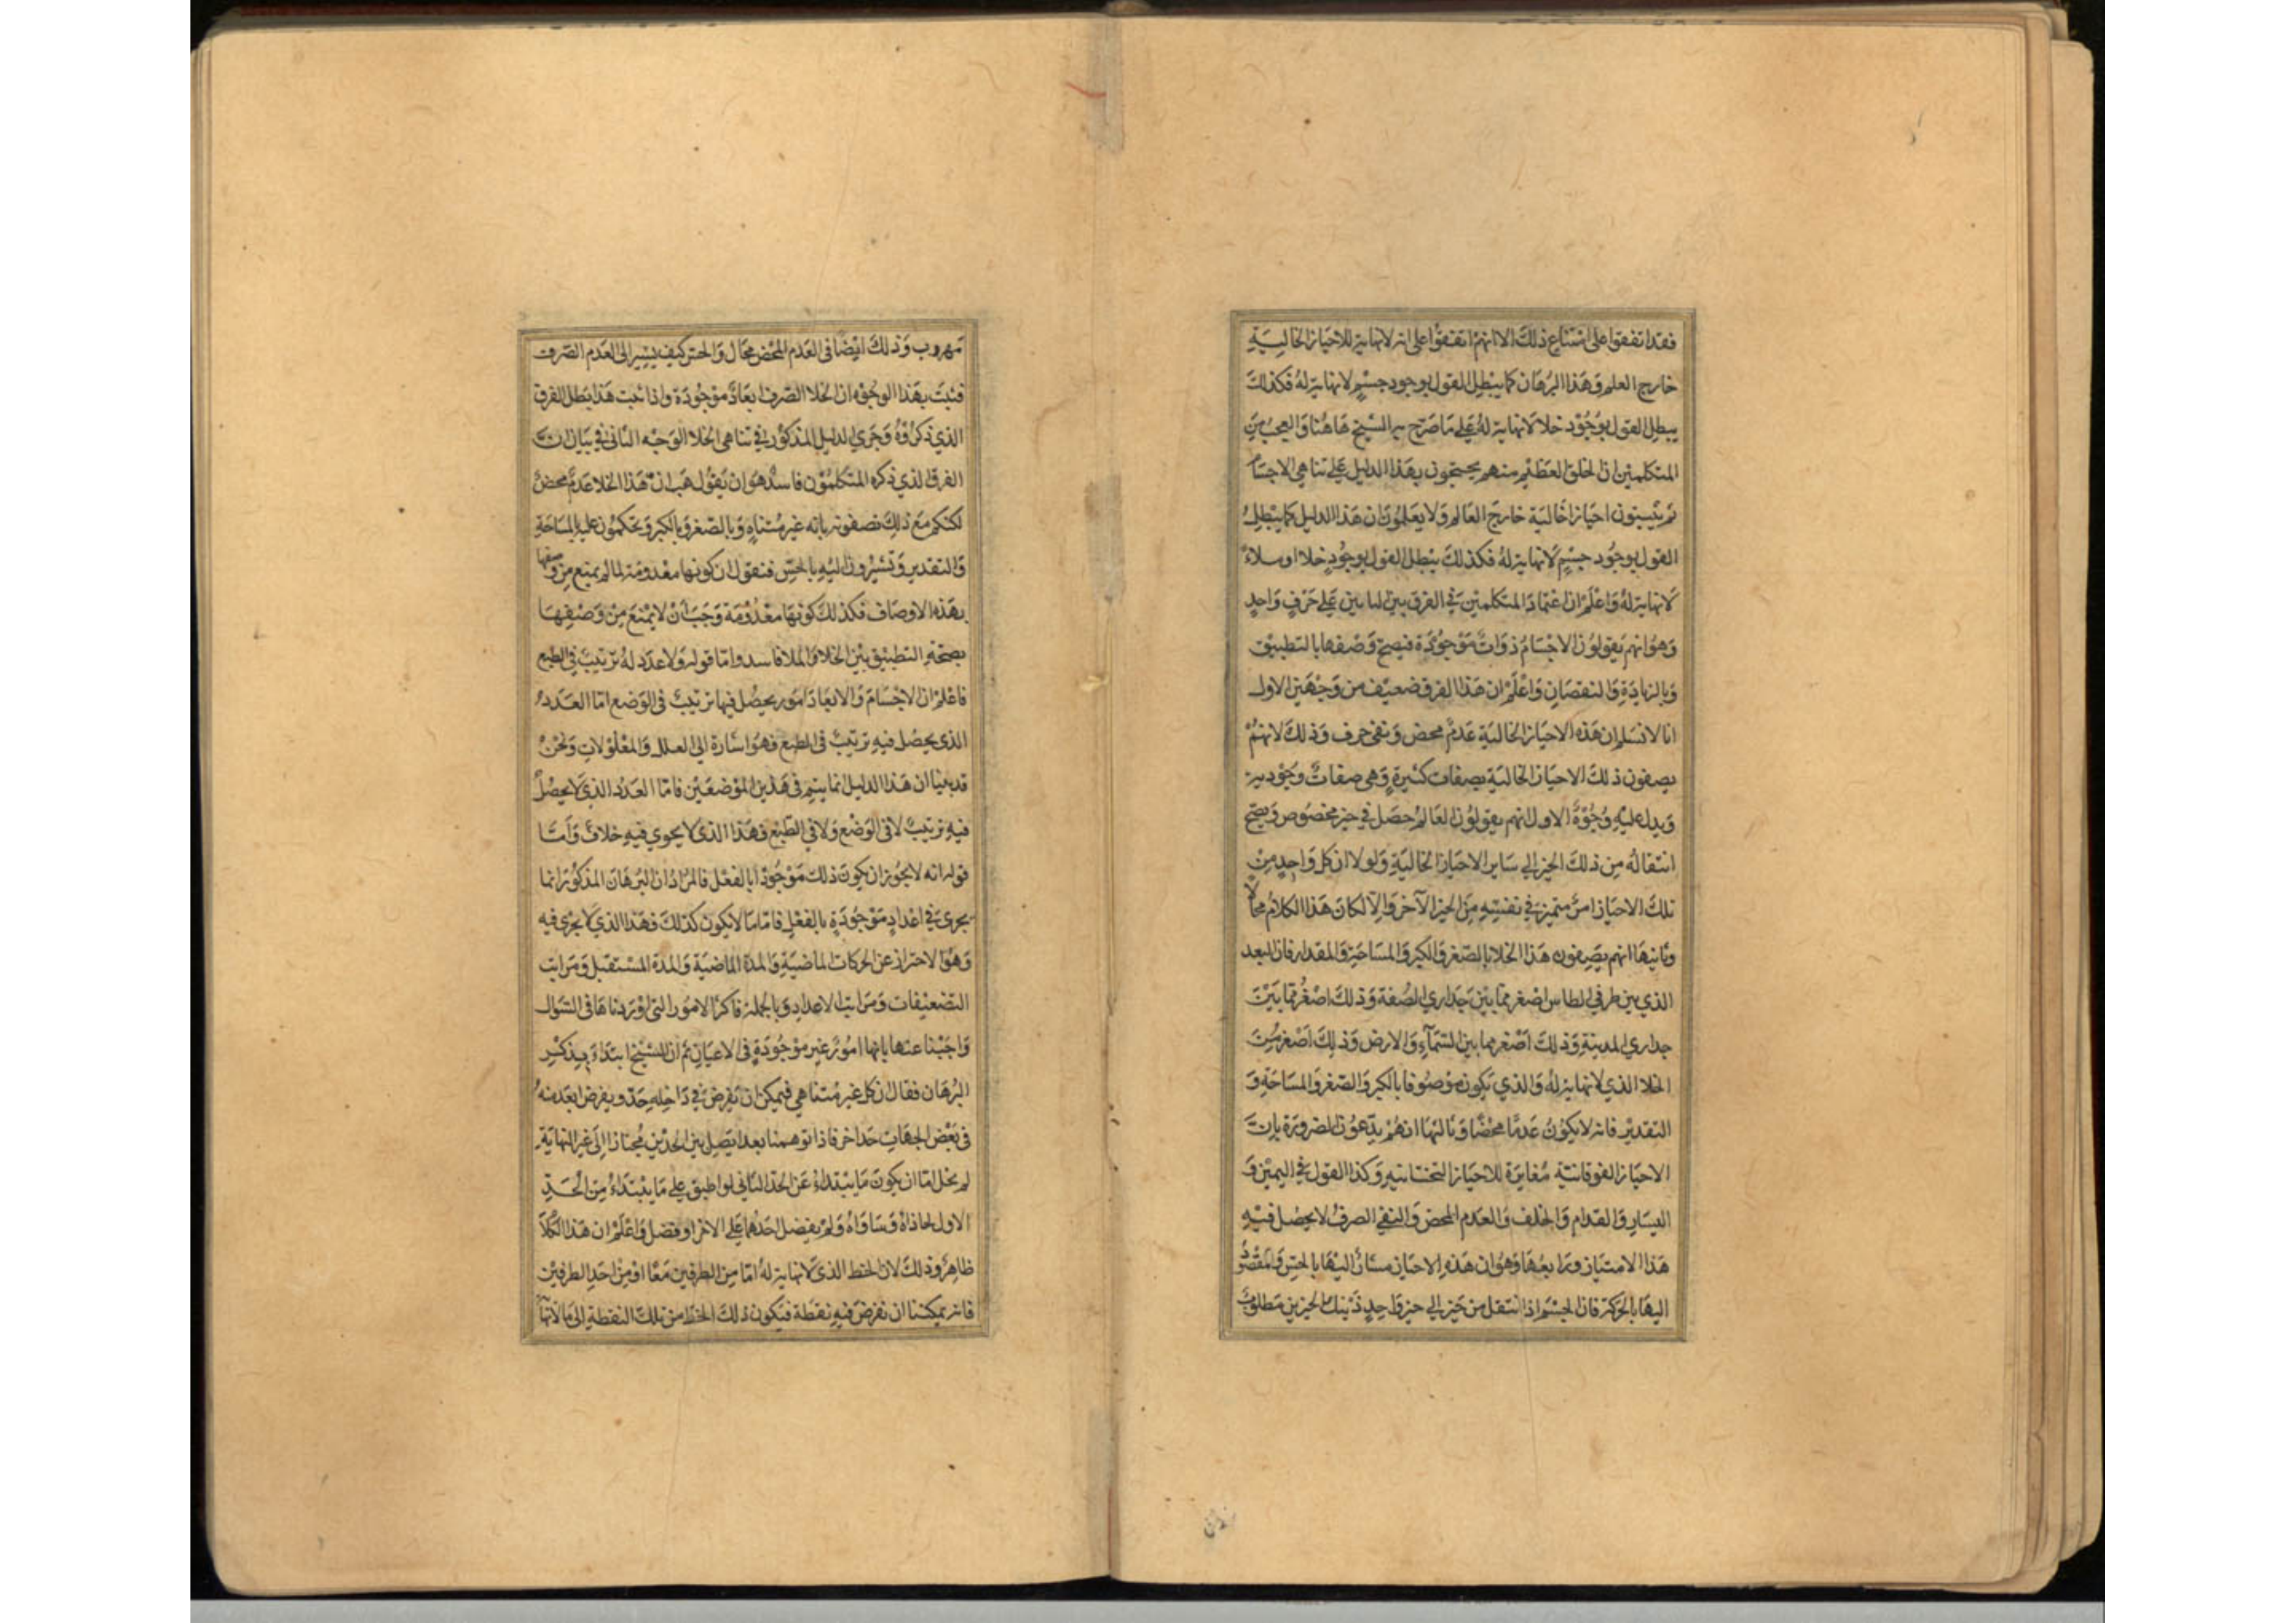 فقد اتفقوا على امتناع ذلك الا انهم اتفقوا على انه لا نهاية للاحياز الخالية
خارج العلم وهذا البرهان كما يبطل القول بوجود جسم لا نهاية له فكذلك
يبطل القول بوجود خلا لا نهاية له على ما صرح به الشيخ هاهنا والعجب من
المتكلمين ان الخلق العظيم منهم يحتجون بهذا الدليل على تناهي الاجسام
ثم يثبتون احيازا خالية خارج العالم ولا يعلمون ان هذا الدليل كما يبطل
القول بوجود جسم لا نهاية له فكذلك يبطل القول بوجود خلا او ملاء
لا نهاية له واعلم ان اعتماد المتكلمين في الفرق بين البابين على حرف واحد
وهو انهم يقولون الاجسام ذوات موجودة فيصح وصفها بالتطبيق
وبالزيادة والنقصان واعلم ان هذا الفرق ضعيف من وجهين الاول
انا لا نسلم ان هذه الاحياز الخالية عدم محض ونفى صرف وذلك لانهم
يصفون ذلك الاحياز الخالية بصفات كثيرة وهي صفات وجودية
ويدل عليه وجوه الاول انهم يقولون العالم حصل في حيز مخصوص ويصح
انتقاله من ذلك الحيز الى ساير الاحياز الخالية ولولا ان كل واحد من
تلك الاحياز امر متميز في نفسه من الحيز الآخر والا لكان هذا الكلام محالا
وثانيها انهم يصفون هذا الخلا بالصغر والكبر والمساحة والمقدار فان البعد
الذي بين طرفي الطاس اصغر مما بين جداري الصفة وذلك اصغر مما بين
جداري المدينة وذلك اصغر مما بين السماء والارض وذلك اصغر من
الخلا الذي لا نهاية له والذي يكون موصوفا بالكبر والصغر والمساحة و
التقدير فانه لا يكون عدما محضا وثالثها انهم يدعون الضرورة بان
الاحياز الفوقانية مغايرة للاحياز التحتانية وكذا القول في اليمين و
اليسار والقدام والخلف والعدم المحض والنفي الصرف لا يحصل فيه
هذا الامتياز ورابعها وهو ان هذه الاحياز مشار اليها بالحس والمقصود
اليها بالحركة فان الجسم اذا انتقل من حيز الى حيز واحد ذينك الحيزين مطلوب
مهروب وذلك ايضا في العدم المحض محال والحس كيف يشير الى العدم الصرف
فثبت بهذا الوجوه ان الخلا الصرف ابعاد موجودة واذا ثبت هذا بطل الفرق
الذي ذكروه وجرى الدليل المذكور في تناهي الخلا الوجه الثاني في بيان ان
الفرق الذي ذكره المتكلمون فاسد هو ان نقول هب ان هذا الخلا عدم محض
لكنكم مع ذلك تصفونه بانه غير متناه وبالصغر وبالكبر وتحكمون عليه بالمساحة
والتقدير وتشيرون اليه بالحس فنقول ان كونها معدومة لما لم يمنع من وصفها
بهذه الاوصاف فكذلك كونها معدومة وجب ان لا يمنع من وصفها
بصحة التطبيق بين الخلا والملا فاسد واما قوله ولا عدد له ترتيب في الطبع
فاعلم ان الاجسام والابعاد امور يحصل فيها ترتيب في الوضع اما العدد
الذي يحصل فيه ترتيب في الطبع فهو اشارة الى العلل والمعلولات ونحن
قد بينا ان هذا الدليل انما يتم في هذين الموضعين فاما العدد الذي لا يحصل
فيه ترتيب لا في الوضع ولا في الطبع فهذا الذي لا يحوي فيه خلاف واما
قوله انه لا يجوز ان يكون ذلك موجودا بالفعل فالمراد ان البرهان المذكور انما
يجري في اعداد موجودة بالفعل فاما ما لا يكون كذلك فهذا الذي لا يجري فيه
وهو الاحتراز عن الحركات الماضية والمدة الماضية والمدة المستقبل ومراتب
التضعيفات ومراتب الاعداد وبالجملة فاكثر الامور التي اوردناها في السؤال
واجبنا عنها بانها امور غير موجودة في الاعيان ثم ان الشيخ ابتداء بذكر
البرهان فقال ان كل غير متناهي فيمكن ان نفرض في داخله حد ويفرض ابعد منه
في بعض الجهات حد اخر فاذا توهمنا بعدا يتصل بين الحدين مجتازا الى غير النهاية
لم يخل اما ان يكون ما يبتداء عن الحد الثاني لو اطبق على ما يبتداء من الحد
الاول لحاذاه وساواه ولم يفضل احدهما على الاخر او فضل واعلم ان هذا الكلام
ظاهر وذلك لان الخط الذي لا نهاية له اما من الطرفين معا او من احد الطرفين
فانه يمكننا ان نفرض فيه نقطة فيكون ذلك الخط من تلك النقطة الى ما لا نهاية